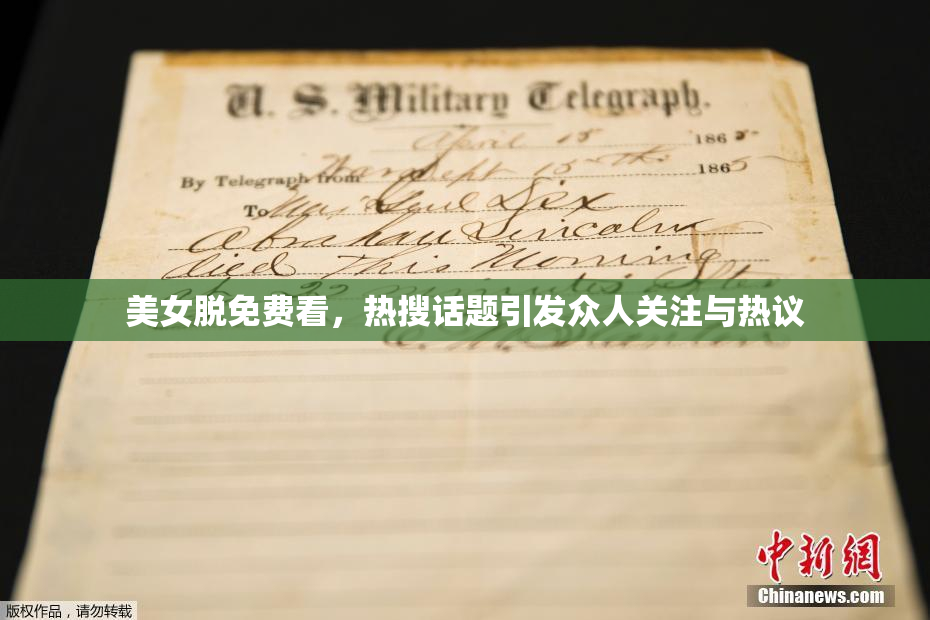 U. S. Military Telegraph.
April 15 1865
By Telegraph from War Dept 15th 1865
To Maj Genl Dix
Abraham Lincoln
died This Morning
22 minutes after
美女脱免费看，热搜话题引发众人关注与热议
E. M. Stanton
中新网
Chinanews.com
版权作品，请勿转载